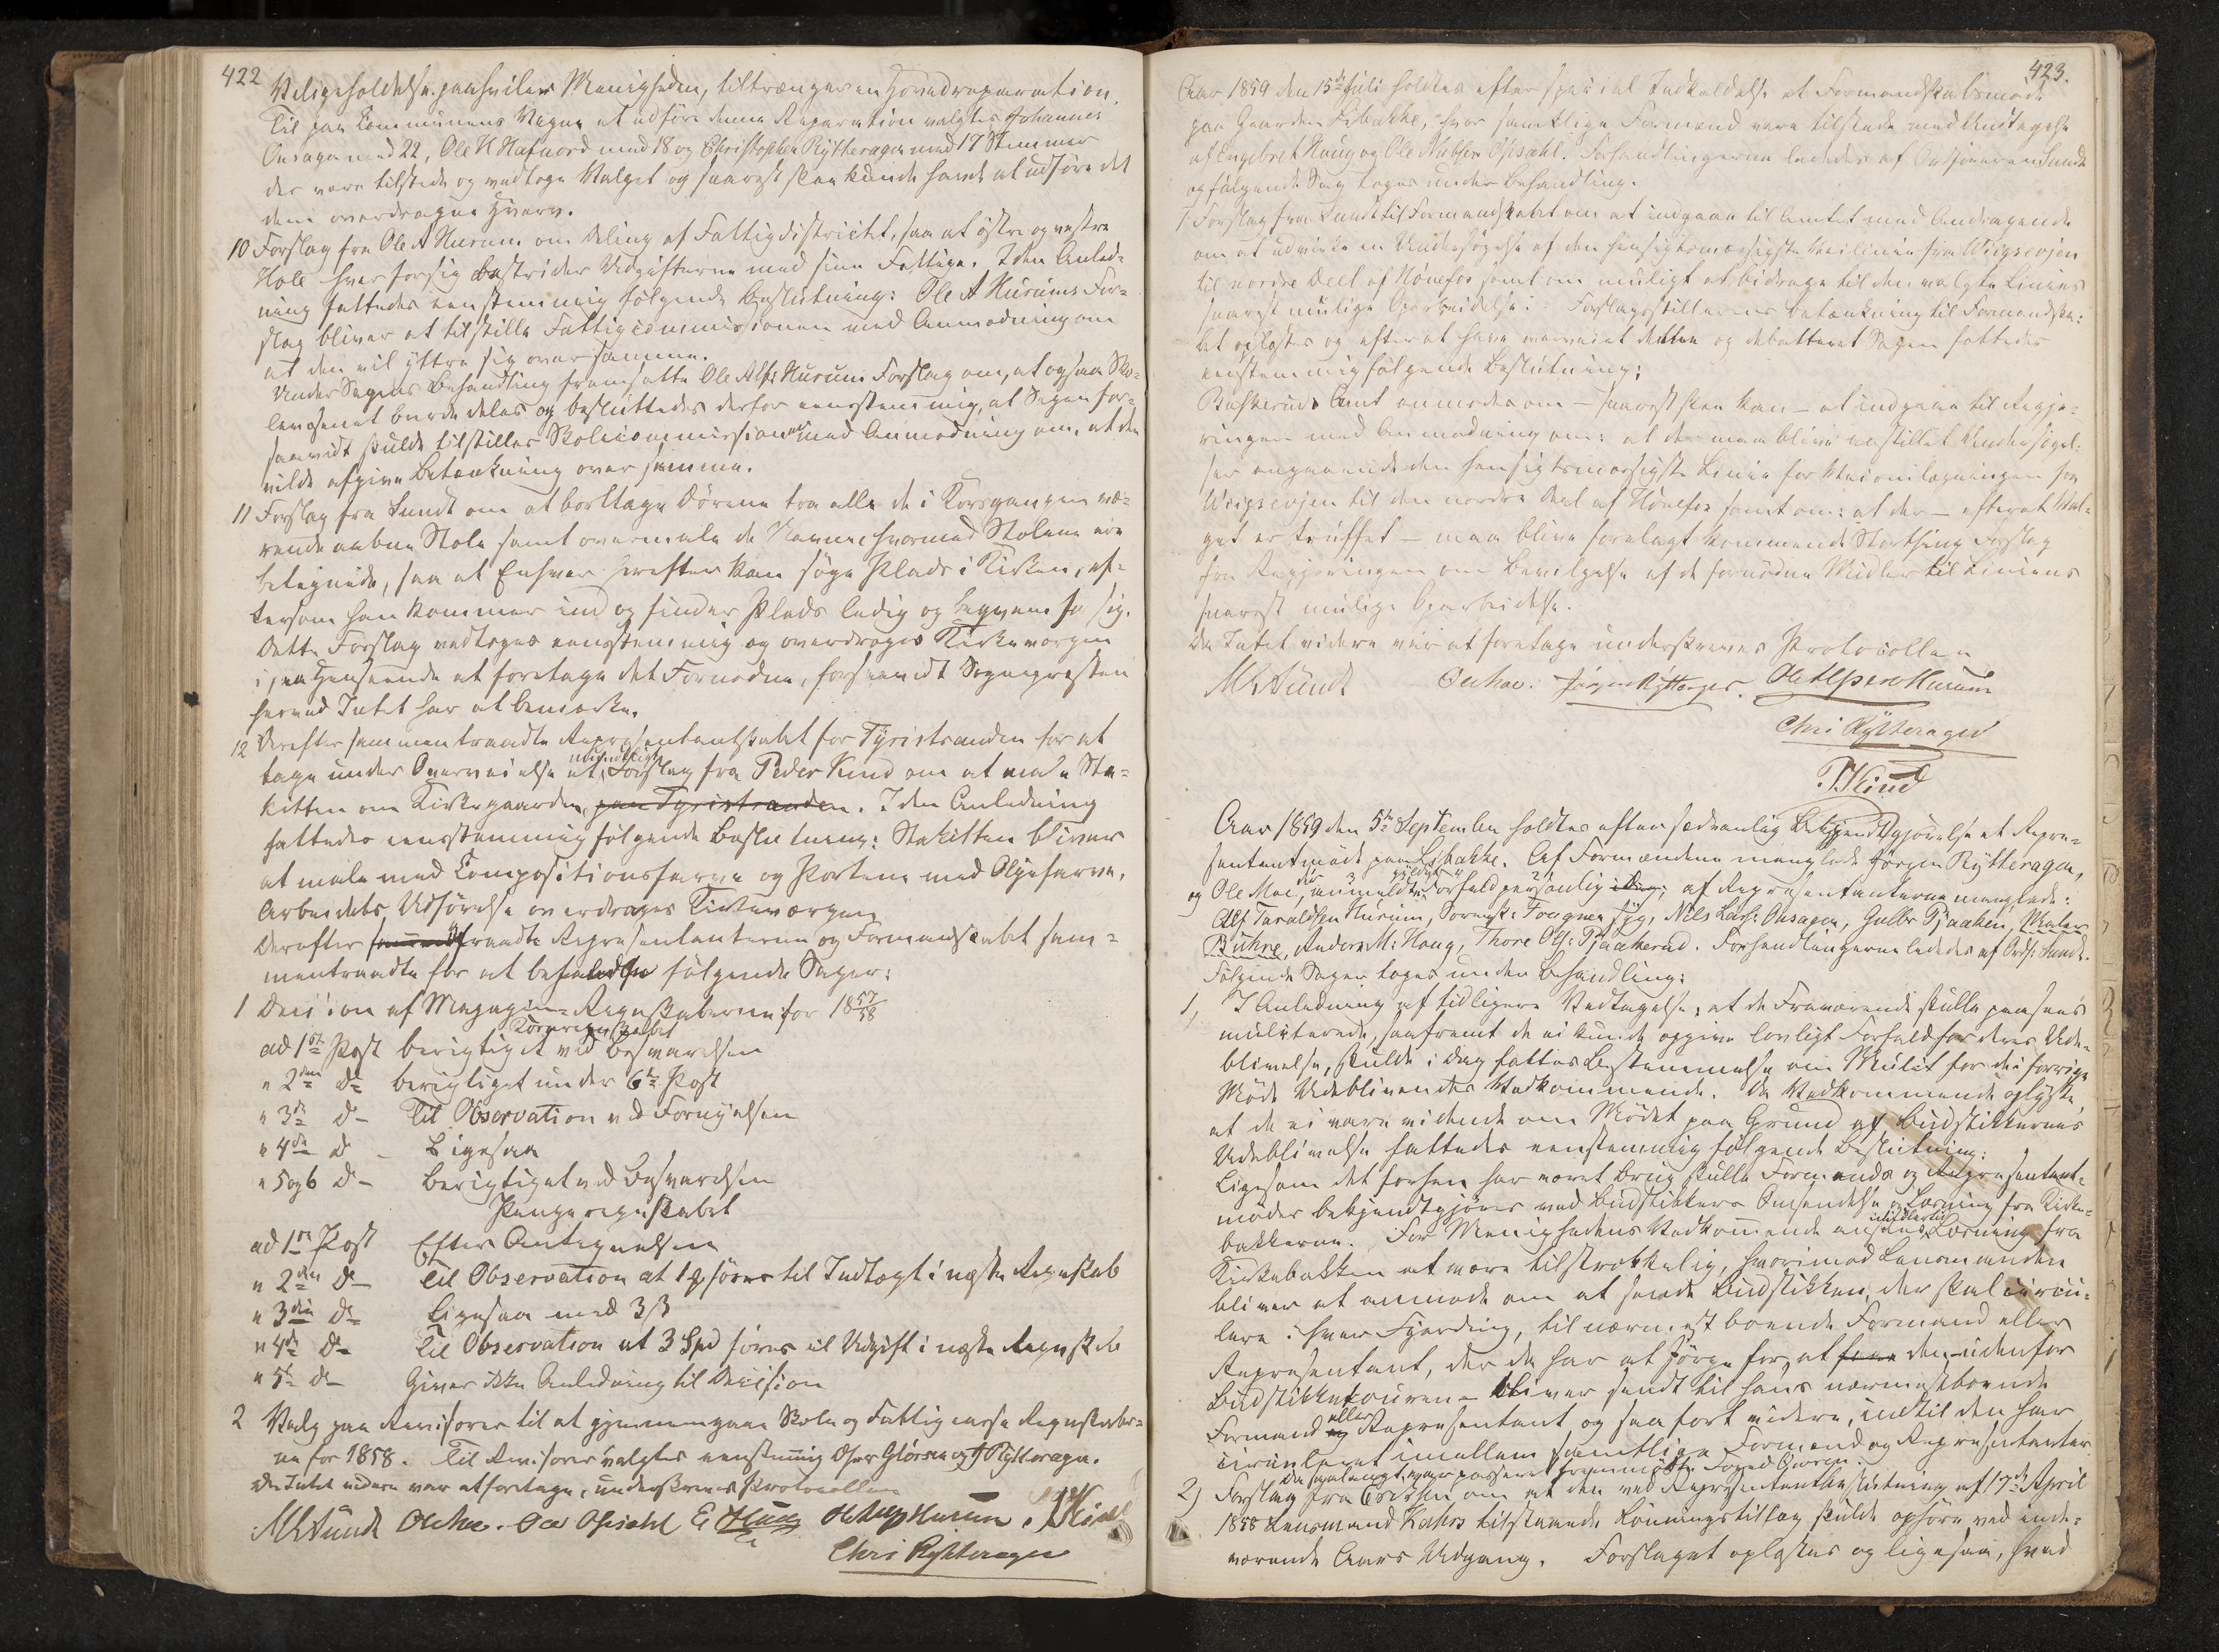 422
Veligeholdelse paahviler Menigheden, tiltrænger en Hovedreparation.
Til paa Communens Vegne at udføre denne Reparation valgtes Johannes
Onsager med 22, Ole H Hafnord med 18 og Christopher Rytterager med 17 Stemmer
der vare tilstede og modtoge Valget og snarest skee kunde havde at udføre det
dem overdragne Hverv.
10 Forslag fra Ole A Hurum om Deling af Fattigdistrictet, saa at østre og vestre
Hole hver for sig bestrider Udgifterne med sine Fattige. I den Anled-
ning fattedes eenstemmig følgende Beslutning: Ole A Hurums For-
slag bliver at tilstille Fattigcommissionen med Anmodning om
at den vil yttre sig over samme.
Under Sagens Behandling fremsatte Ole Alfs: Hurum Forslag om, at ogsaa Sko-
levæsenet burde deles og besluttedes derfor eenstemmig, at Sagen for-
saavidt skulde tilstilles Skolecommissionen med Anmodning om, at den
vilde afgive Betænkning over samme.
11 Forslag fra Sundt om at borttage Dørene fra alle de i Korsgangen væ-
rende aabne Stole samt overmale de Navne hvormed Stolene ere
betegnede, saa at Enhver herefter kan søge Plads i Kirken, ef-
tersom han kommer ind og finder Plads ledig og beqvem for sig.
Dette Forslag vedtoges eenstemmig og overdroges Kirkeværgen
i saa Henseende at foretage det Fornødne, forsaavidt Sognepresten
herved Intet har at bemærke.
12 Derefter sammentraadte Repræsentantskabet for Tyristranden for at
tage under Overveielse et Forslag fra Peder Kind om at male Sta-
kitten om Kirkegaarden paa Tyristranden. I den Anledning
fattedes eenstemmig følgende Beslutning: Stakitten bliver
at male med Compositionsfarve og Portene med Oljefarve.
Arbeidets Udførelse overdrages Kirkeværgen
Derefter traadte Repræsentanterne og Formandskabet sam-
mentraadte for at behandle følgende Sager:
1 Decision af Magazin-Regnskaberne for 1857/58
Kornregnskabet
ad 1ste Post berigtiget ved Besvarelsen
" 2den do berigtiget under 6te Post
" 3die do Til Observation ved Fornyelsen
" 4de do Ligesaa
" 5 og 6 do Berigtiget ved Besvarelsen
Pengeregnskabet
ad 1ste Post Efter Antegnelsen
" 2den do Til Observation at 1 ß føres til Indtægt i næste Regnskab
" 3die do Ligesaa med 3 ß
" 4de do Til Observation at 3 Spd føres til Udgift i næste Regnskab
" 5te do Giver ikke Anledning til Decision
2 Valg paa Revisorer til at gjennemgaae Skole og Fattigcasse Regnskaber-
ne for 1858. Til Revisorer valgtes eenstemmig Ohren Giørsen og J Rytterager.
Da Intet videre var at foretage, underskreves Protocollen
Sundt Ole Moe. Ole Opsahl E Haug Ole Alfsen Hurum. P Kind
Chri Rytterager
423.
Aar 1859 den 15de Juli holdtes efter special Indkaldelse et Formandskabsmøde
paa Gaarden Libakke, hvor samtlige Formænd vare tilstede med Undtagelse
af Engebret Haug og Ole Nubsen Opsahl. Forhandlingerne lededes af Ordføreren Sundt
og følgende Sag toges under Behandling.
1 Forslag fra Sundt til Formandskabet om at indgaae til Amtet med Andragende
om at udvirke en Undersøgelse af den hensigtsmæssigste Veilinie fra Wiigsevjen
til nordre Deel af Hønefos samt om muligt at bidrage til den valgte Linies
snarest mulige Oparbeidelse. Forslagsstillerens Betænkning til Formandska-
bet oplæstes og efter at have overveiet dette og debatteret Sagen fattedes
eenstemmig følgende Beslutning:
Buskeruds Amt anmodes om – snarest skee kan – at indgaae til Regje-
ringen med Anmodning om: at der maa blive anstillet Undersøgel-
ser angaaende den hensigtsmæssigste Linie for Veiomlægningen fra
Wiigsevjen til den nordre Deel af Hønefos samt om: at der – efterat Val-
get er truffet – maa blive forelagt kommende Storthing Forslag
fra Regjeringen om Bevilgelse af de fornødne Midler til Liniens
snarest mulige Oparbeidelse.
Da Intet videre var at foretage underskreves Protocollen
Sundt Ole Moe. Jørgen Rytterager. Ole Alfsen Hurum
Chri Rytterager
P Kind
Aar 1859 den 5te September holdtes efter sædvanlig Bekjendtgjørelse et Repræ-
sentantmøde paa Libakke. Af Formændene manglede Jørgen Rytterager,
og Ole Moe, der anmeldte gyldigt Forfald personlig idag; af Repræsentanterne manglede:
Alf Taraldsen Hurum, Sorensk: Fougner syg, Nils Lars: Onsager, Gulbr Tjaaken, Maler
Buhre, Anders M: Haug, Thore Ols: Tjaakerud. Forhandlingerne lededes af Ordf: Sundt.
Følgende Sager toges under Behandling:
1, I Anledning af tidligere Vedtagelse, at de Fraværende skulle ansees
mulcterede, saafremt de ei kunde opgive lovligt Forfald for deres Ude-
blivelse, skulde i Dag fattes Bestemmelse om Mulct for de i forrige
Møde Udeblivendes Vedkommende. Da Vedkommende oplyste
at de ei vare vidende om Mødet paa Grund af Budstikkernes
Udeblivelse fattedes eenstemmig følgende Beslutning:
Ligesom det forhen har været Brug skulle Formands og Repræsentant-
møder bekjendtgjøres ved Budstikkers Omsendelse og Læsning fra Kirke-
bakkerne. For Menighedens Vedkommende ansees imidlertid Læsning fra
Kirkebakken at være tilstrækkelig, hvorimod Lensmanden
bliver at anmode om at sende Budstikken, der skal circu-
lere i hver Fjerding, til nærmest boende Formand eller
Repræsentant, der da har at sørge for, at den – udenfor
Budstikketouren – bliver sendt til hans nærmestboende
Formand eller Repræsentant og saa fort videre, indtil den har
circuleret imellem samtlige Formænd og Repræsentanter
2) Forslag fra Eriksen om at den ved Repræsentantbeslutning af 17de April
1858 Lensmand Kahrs tilstaaede Lønningstillæg skulde ophøre ved inde-
værende Aars Udgang. Forslaget oplæstes og ligesaa, hvad